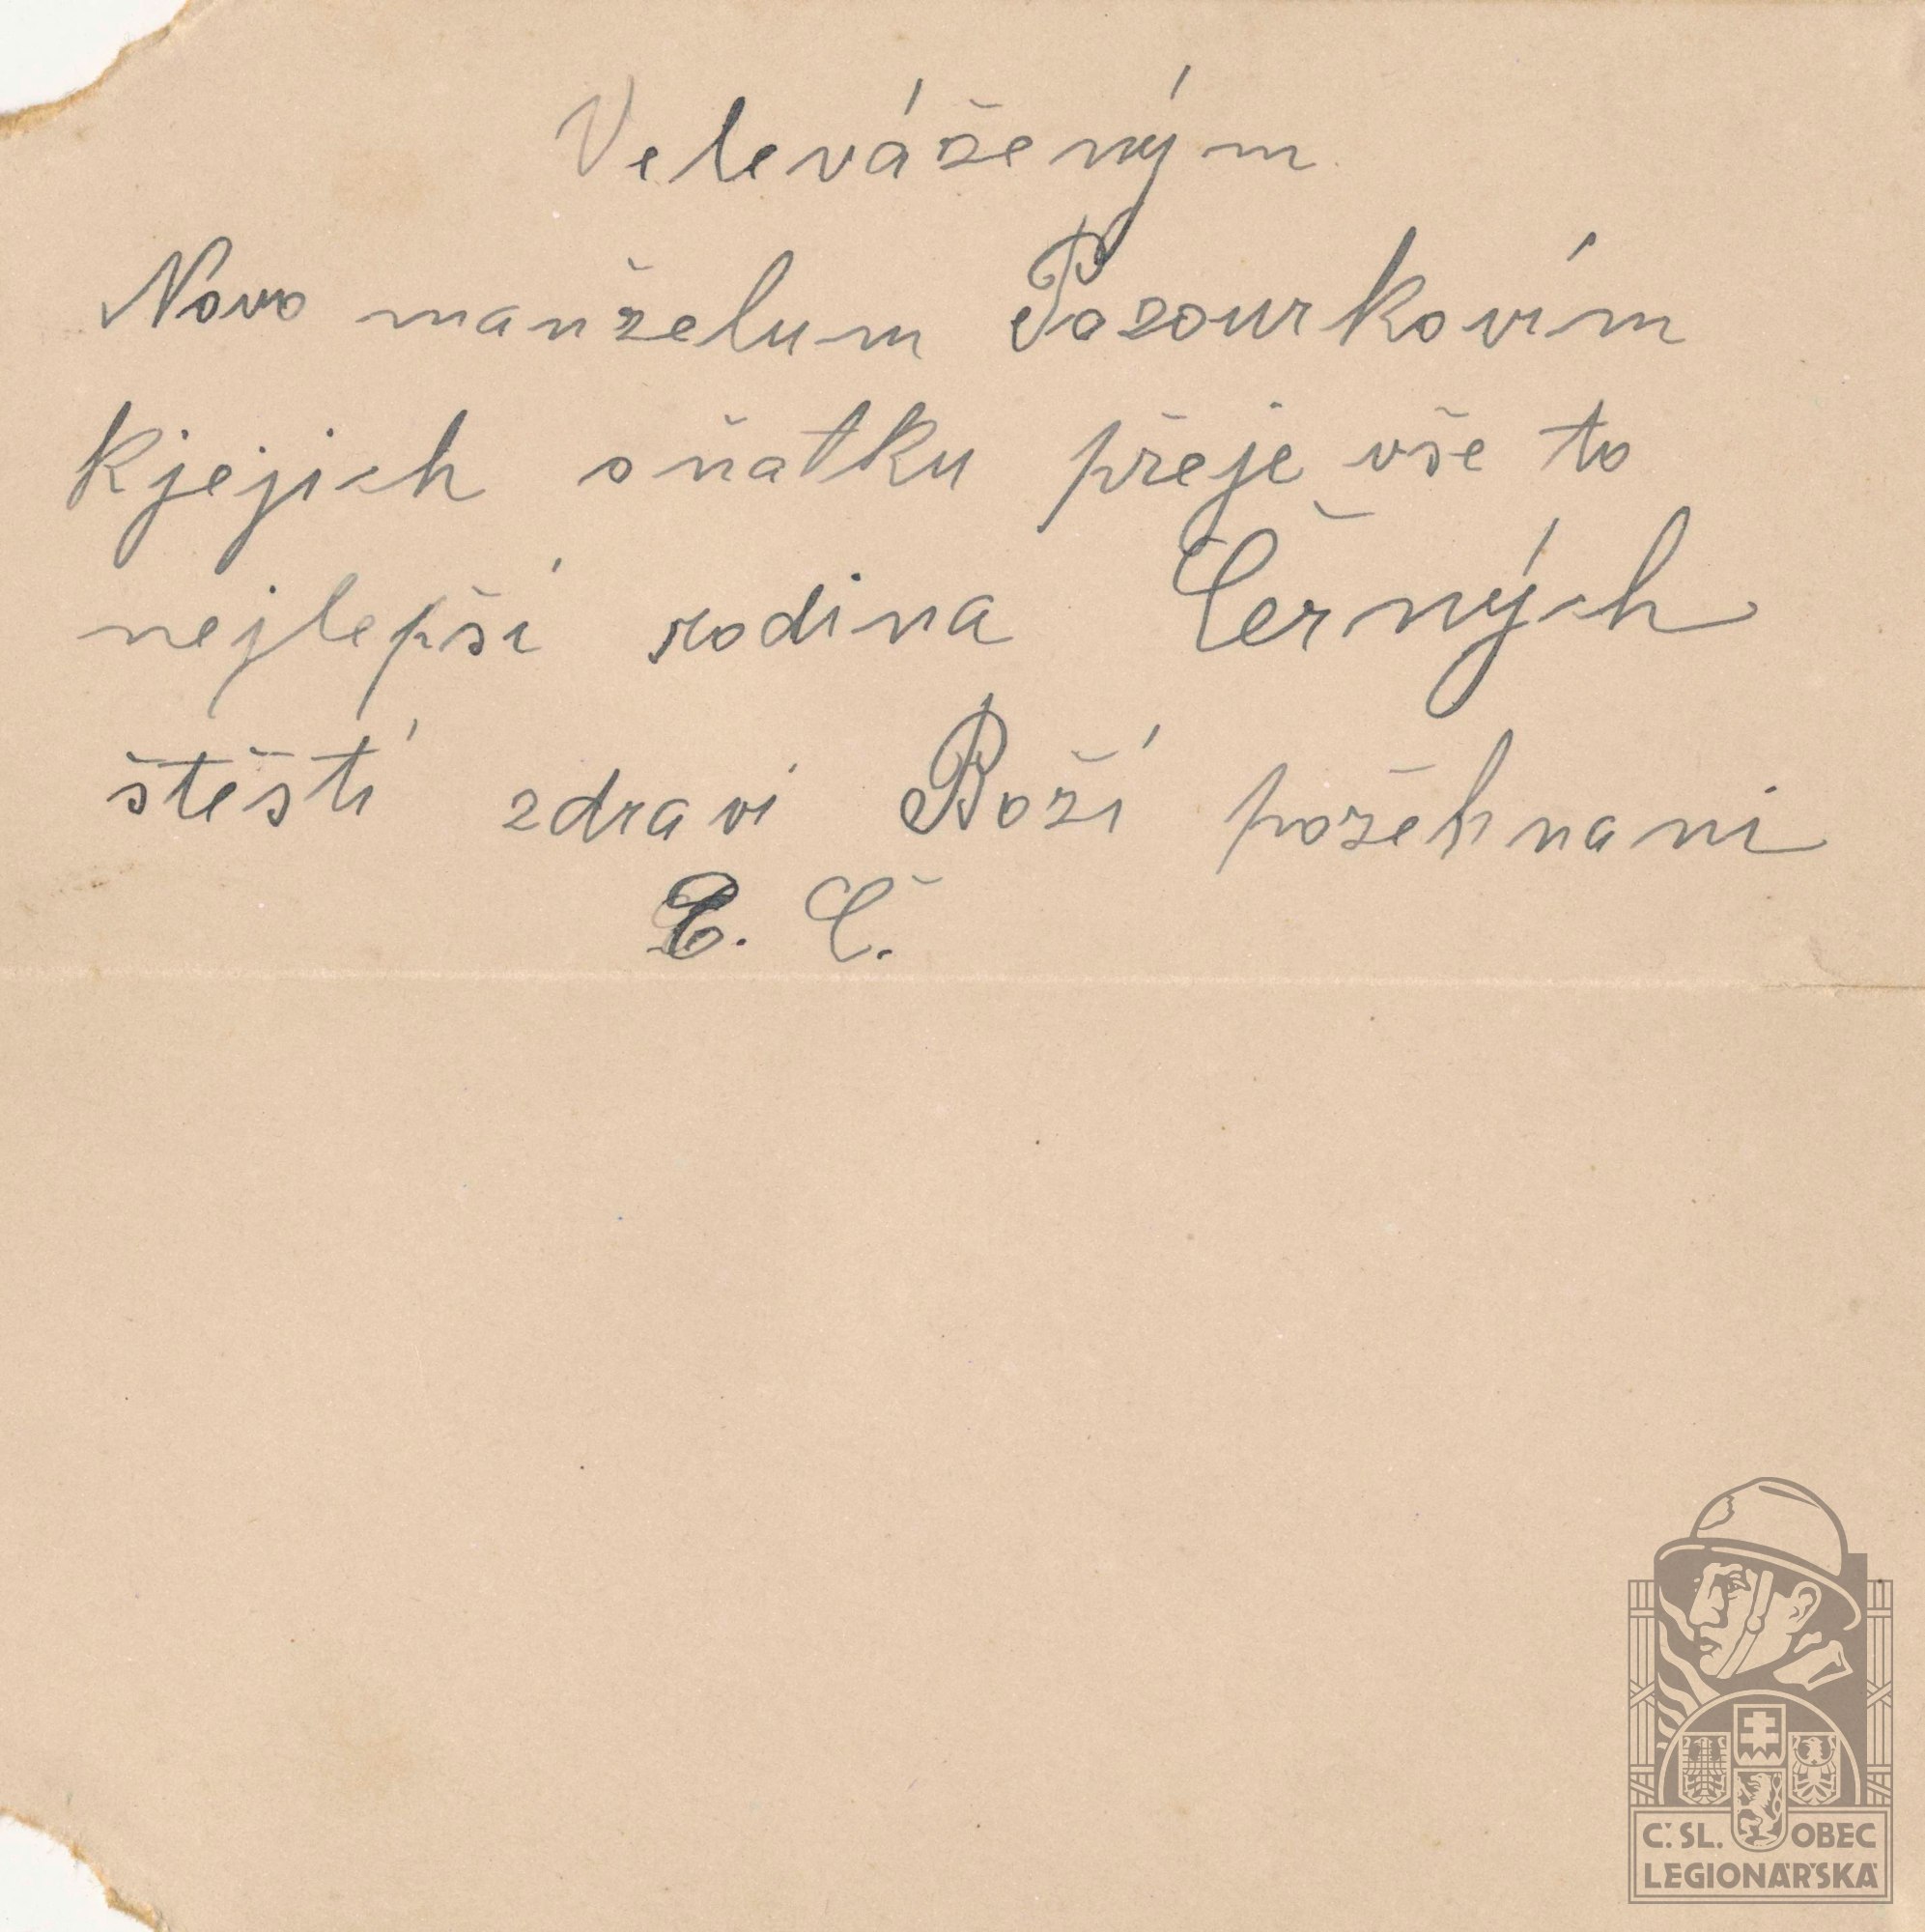 Velevášeným
Novo manželum Pozourkovím
kjejich sňatku přeje vše to
nejlepší rodina Černých
štěští zdravi Boží požehnani
Č. Č.
Č. SL. OBEC
LEGIONÁŘSKÁ